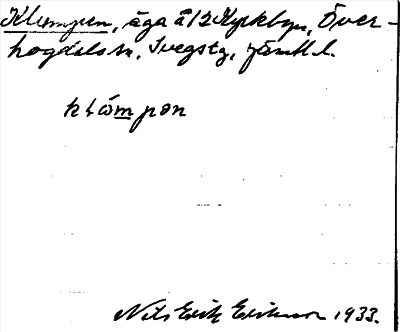 Klumpen, äga å 12 Kyrkbyn, Över-
hogdals sn, Svegs tg, Jämtl. l.
klömpən
Nils Erik Eriksson 1933.